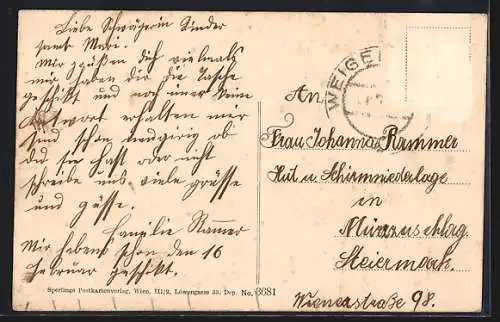 Liebe Schwägerin Kinder
samt Mari.
Wir grüßen dich vielmals
wir haben dir die Tasche
geschikt und noch imer keine
Antwort erhalten wir
sind schon neugirig ob
du sie hast oder nicht
schreibe uns viele grüsse
und
Familie Rammer
Wir habens schon den 16
Februar geschikt.
An
WEIGE
Frau Johanna Rammer
Hut u Schirmniederlage
in
Mürzzuschlag
Steiermark.
Wienerstraße 98.
Sperlings Postkartenverlag, Wien, III/2, Löwengasse 33. Dep. No. 3681